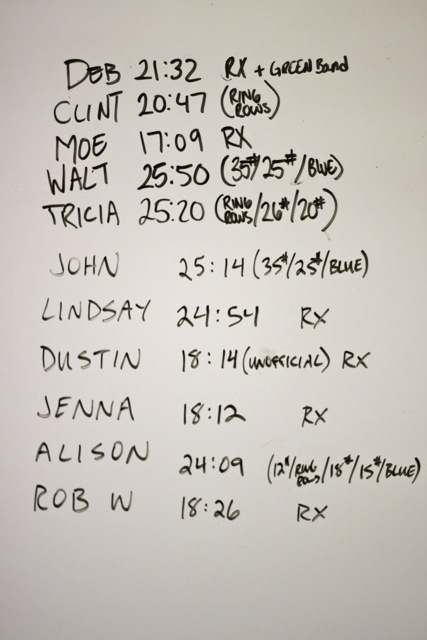 DEB 21:32 RX + GREEN Band
CLINT 20:47 (RING ROWS)
MOE 17:09 RX
WALT 25:50 (35#/25#/BLUE)
TRICIA 25:20 (RING ROWS/26#/20#)
JOHN 25:14 (35#/25#/BLUE)
LINDSAY 24:54 RX
DUSTIN 18:14 (UNOFFICIAL) RX
JENNA 18:12 RX
ALISON 24:09 (12"/RING ROWS/18#/15#/BLUE)
ROB W 18:26 RX